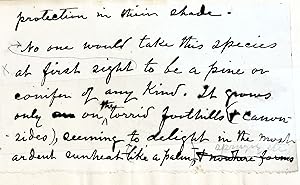 protection in their shade.
No one would take this species
at first sight to be a pine or
conifer of any kind. It grows
only on the torrid foothills & canon-
sides), seeming to delight in the most
ardent sunheat like a palm, & nowhere forms